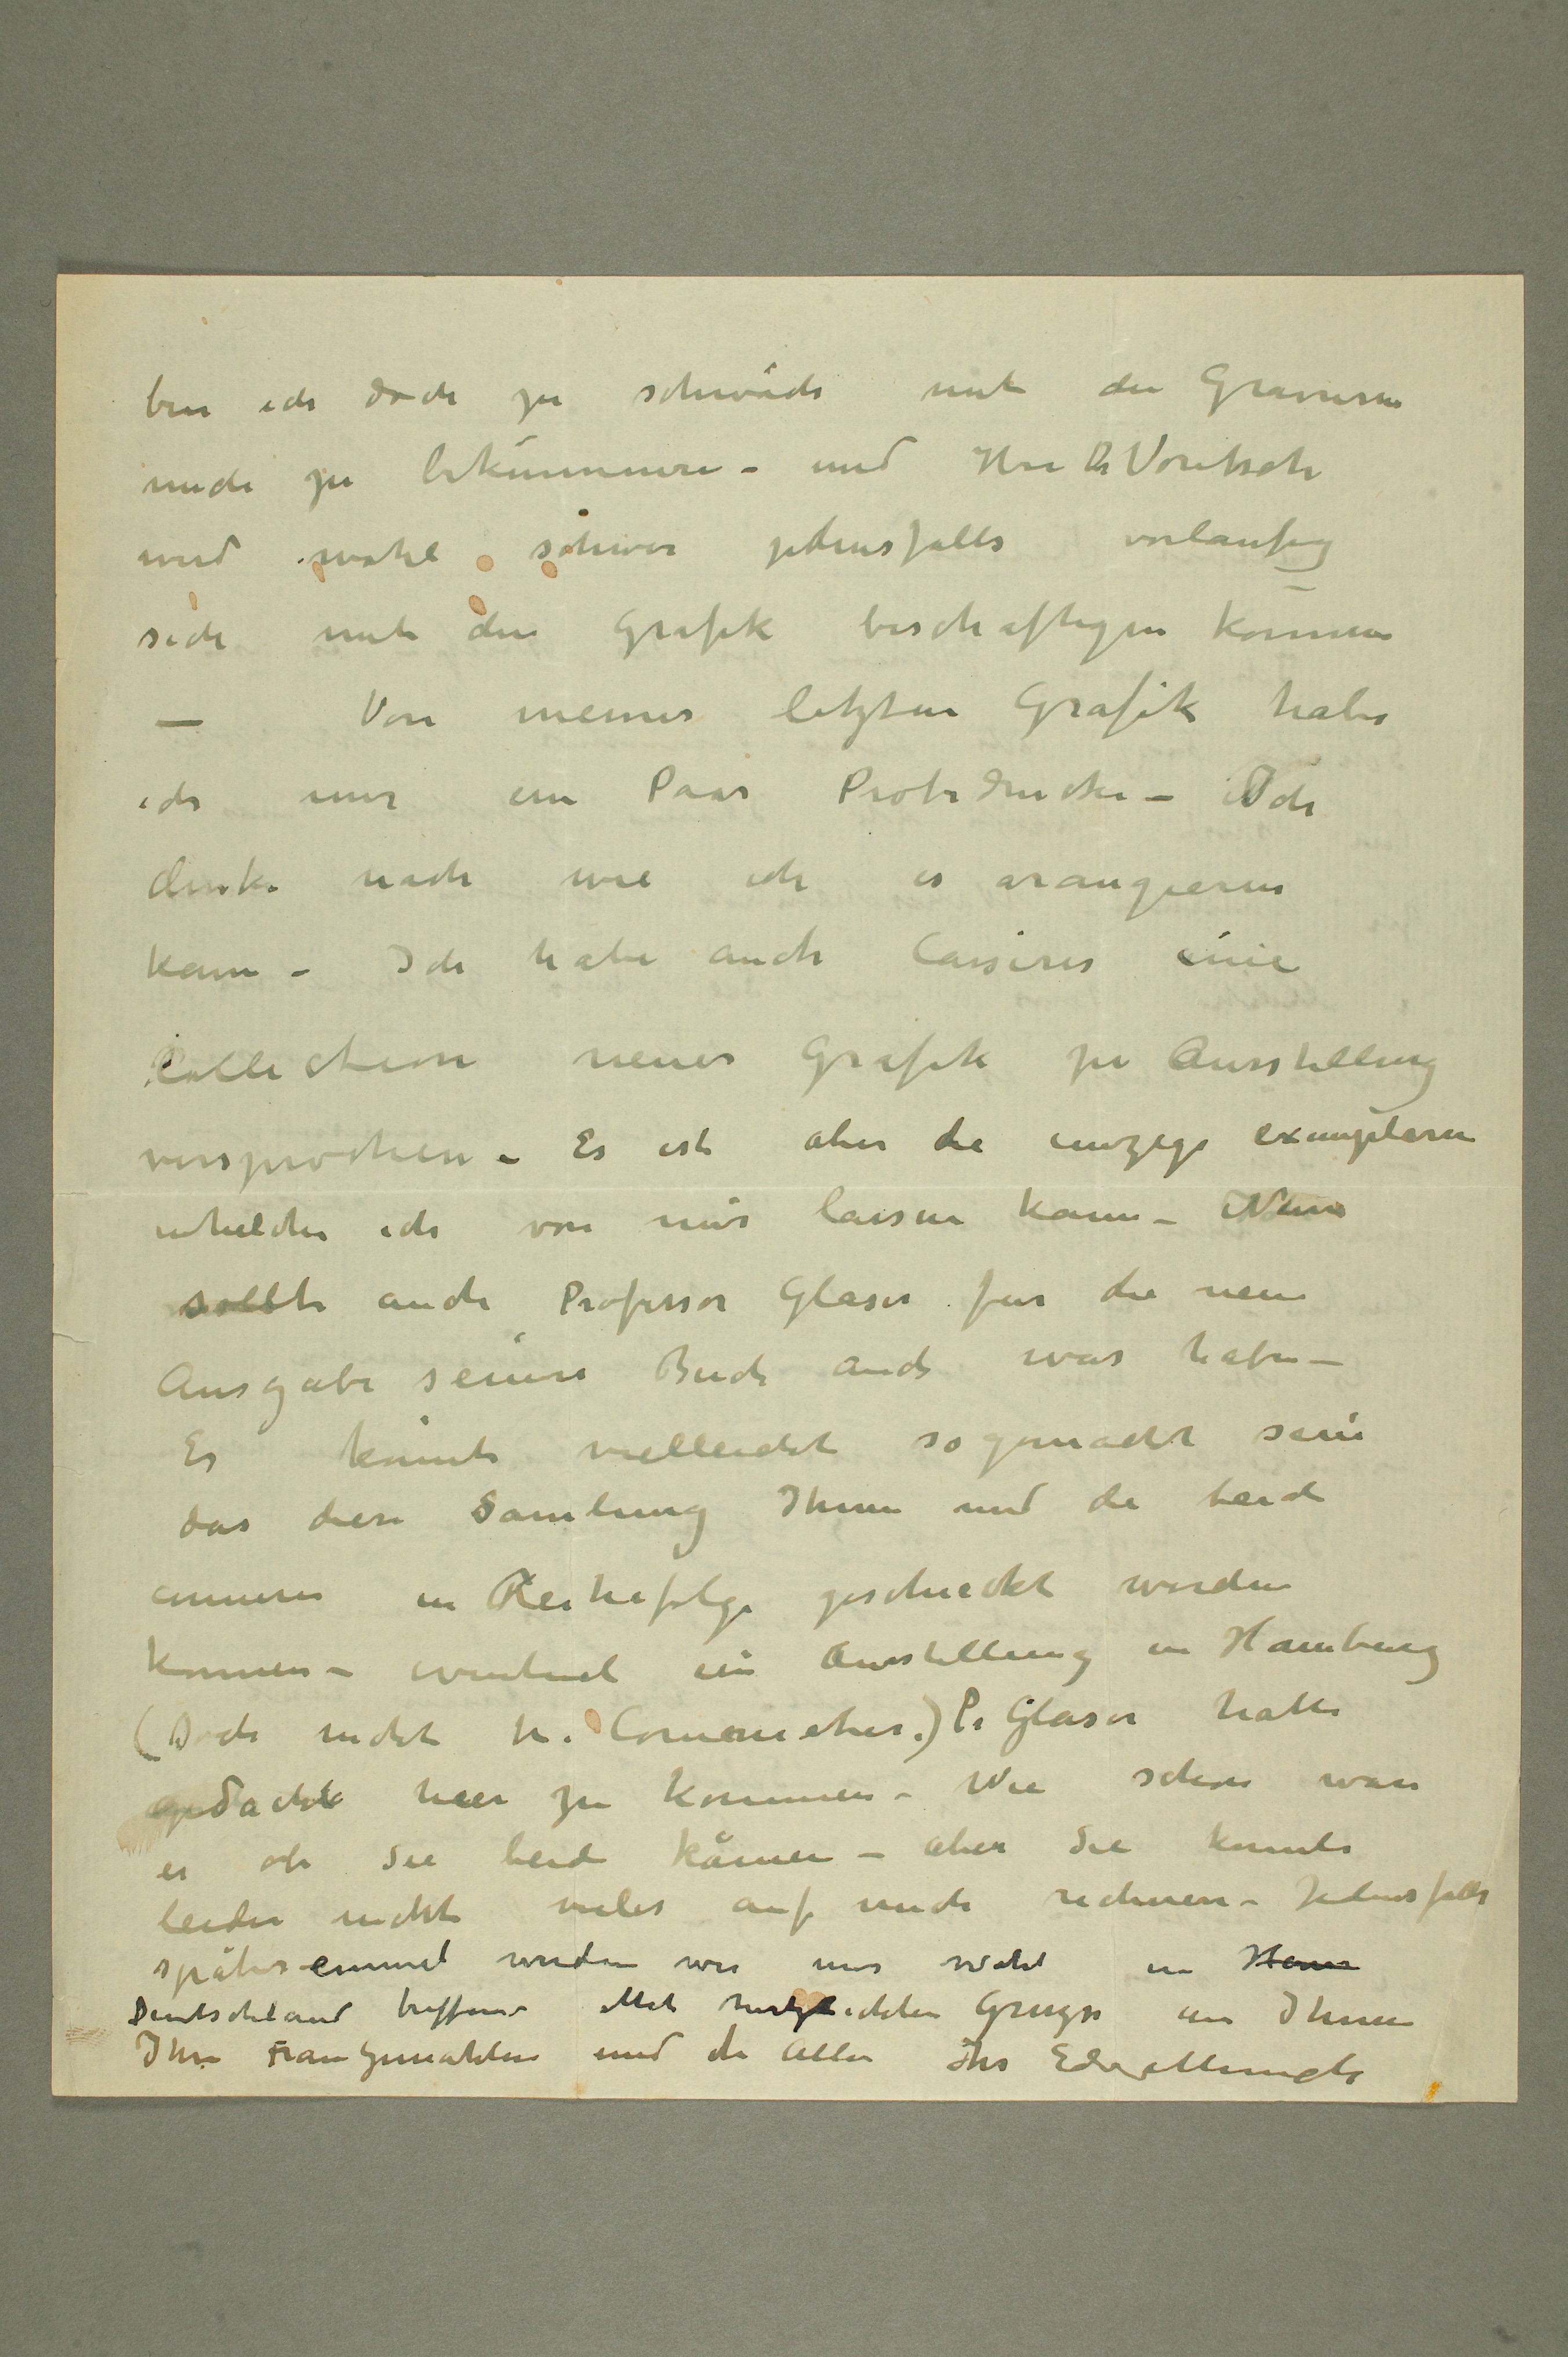 bin ich doch zu schwach mit der Gravuren
mich zu bekümmere – und Herr Dr Voretzsch
wird wohl schwer jedensfalls vorlaufig
sich mit der Grafik beschaftigen können
— Von meiner letzten Grafik habe
ich nur ein Paar Probedrucke – Ich
denke nach wie ich es arangieren
kann – Ich habe auch Cassirer eine
Collection neuer Grafik zu Ausstellung
versprochen – Es ist aber die einzige exemplaren
whelche ich von mir lassen kann – Nun
sollte auch Professor Glaser für die neue
Ausgabe seines Buch auch was haben –
Es könnte vielleicht so gemacht sein
das diese Samlung Ihnen und die beide
anneren in Reihefolge geschieckt werden
konnen – eventuel ein Ausstellung in Hamburg
(Doch nicht h. Commeter.) Pr Glaser hatte
gedacht hier zu kommen – Wie schon war
es ob Sie beide kämen – aber Sie konnte
leider nicht vieles auf mich rechnen – Jedensfalls
später einmal werden wir uns wohl in Ham
Deutschland treffen – Mit herzlichten Grüsse an Ihnen
Ihre Frau Gemahlin und die Alle Ihr Edv. Munch